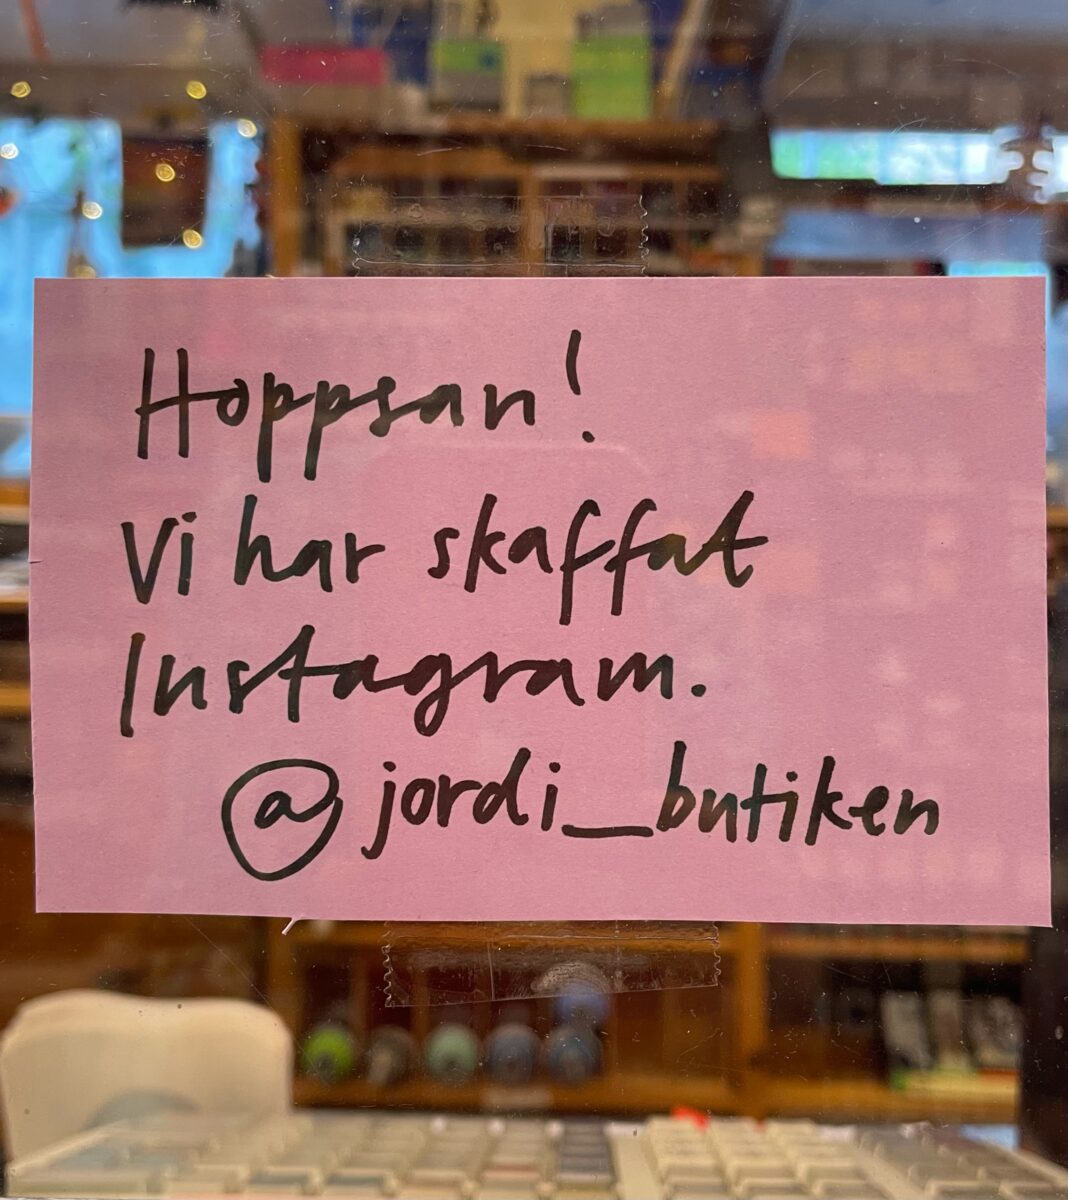 Hoppsan!
Vi har skaffat
Instagram.
@jordi_butiken